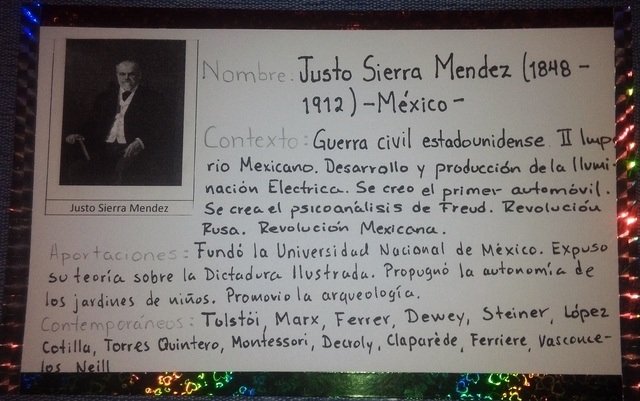 Nombre: Justo Sierra Mendez (1848-
1912) -México-
Contexto: Guerra civil estadounidense II Impe
rio Mexicano. Desarrollo y producción de la Ilumi-
nación Electrica. Se creo el primer automóvil.
Se crea el psicoanálisis de Freud. Revolución
Rusa. Revolución Mexicana.
Justo Sierra Mendez
Aportaciones: Fundó la Universidad Nacional de México. Expuso
su teoría sobre la Dictadura Ilustrada. Propugnó la autonomía de
los jardines de niños. Promovio la arqueología.
Contemporáneos: Tolstói, Marx, Ferrer, Dewey, Steiner, López
Cotilla, Torres Quintero, Montessori, Decroly, Claparède, Ferriere, Vasconce-
los, Neill